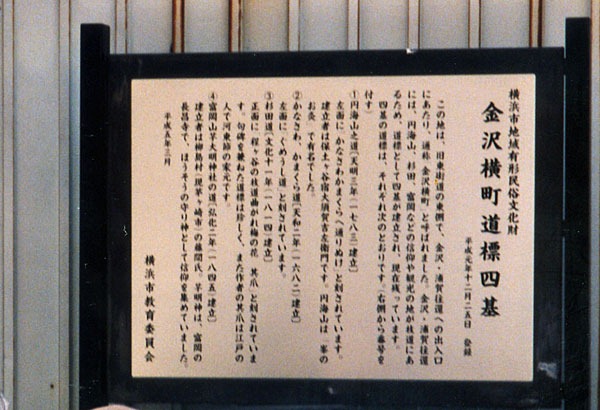 横浜市地域有形民俗文化財
金沢横町道標四基
平成元年十二月二五日 登録
この地は、旧東海道の東側で、金沢・浦賀往還への出入口
にあたり、通称「金沢横町」と呼ばれました。金沢・浦賀往還
には、円海山、杉田、富岡などの信仰や観光の地が枝道にあ
るため、道標として四基が建立され、現在残っています。
四基の道標は、それぞれ次のとおりです。(右側から番号を
付す)
①円海山之道[天明三年(一七八三)建立]
左面に「かなさわかまくらへ通りぬけ」と刻されています。
建立者は保土ヶ谷宿大須賀吉左衛門です。円海山は「峯の
お灸」で有名でした。
②かなさわ、かまくら道[天和二年(一六八二)建立]
左面に「ぐめうし道」と刻されています。
③杉田道[文化十一年(一八一四)建立]
正面に「程ヶ谷の枝道曲がれ梅の花 其爪」と刻されていま
す。句碑を兼ねた道標は珍しく、また作者の其爪は江戸の
人で河東節の家元です。
④富岡山芋大明神社の道[弘化二年(一八四五)建立]
建立者は柳島村(現茅ヶ崎市)の藤間氏。芋明神は、富岡の
長昌寺で、ほうそうの守り神として信仰を集めていました。
平成五年三月
横浜市教育委員会